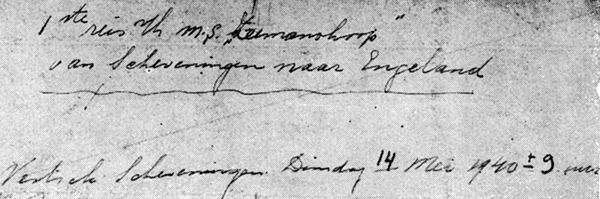 1ste reis v/h m.s. "Zeemanshoop"
van Scheveningen naar Engeland
Vertrek Scheveningen. Dinsdag 14 Mei 1940 ± 9 uur